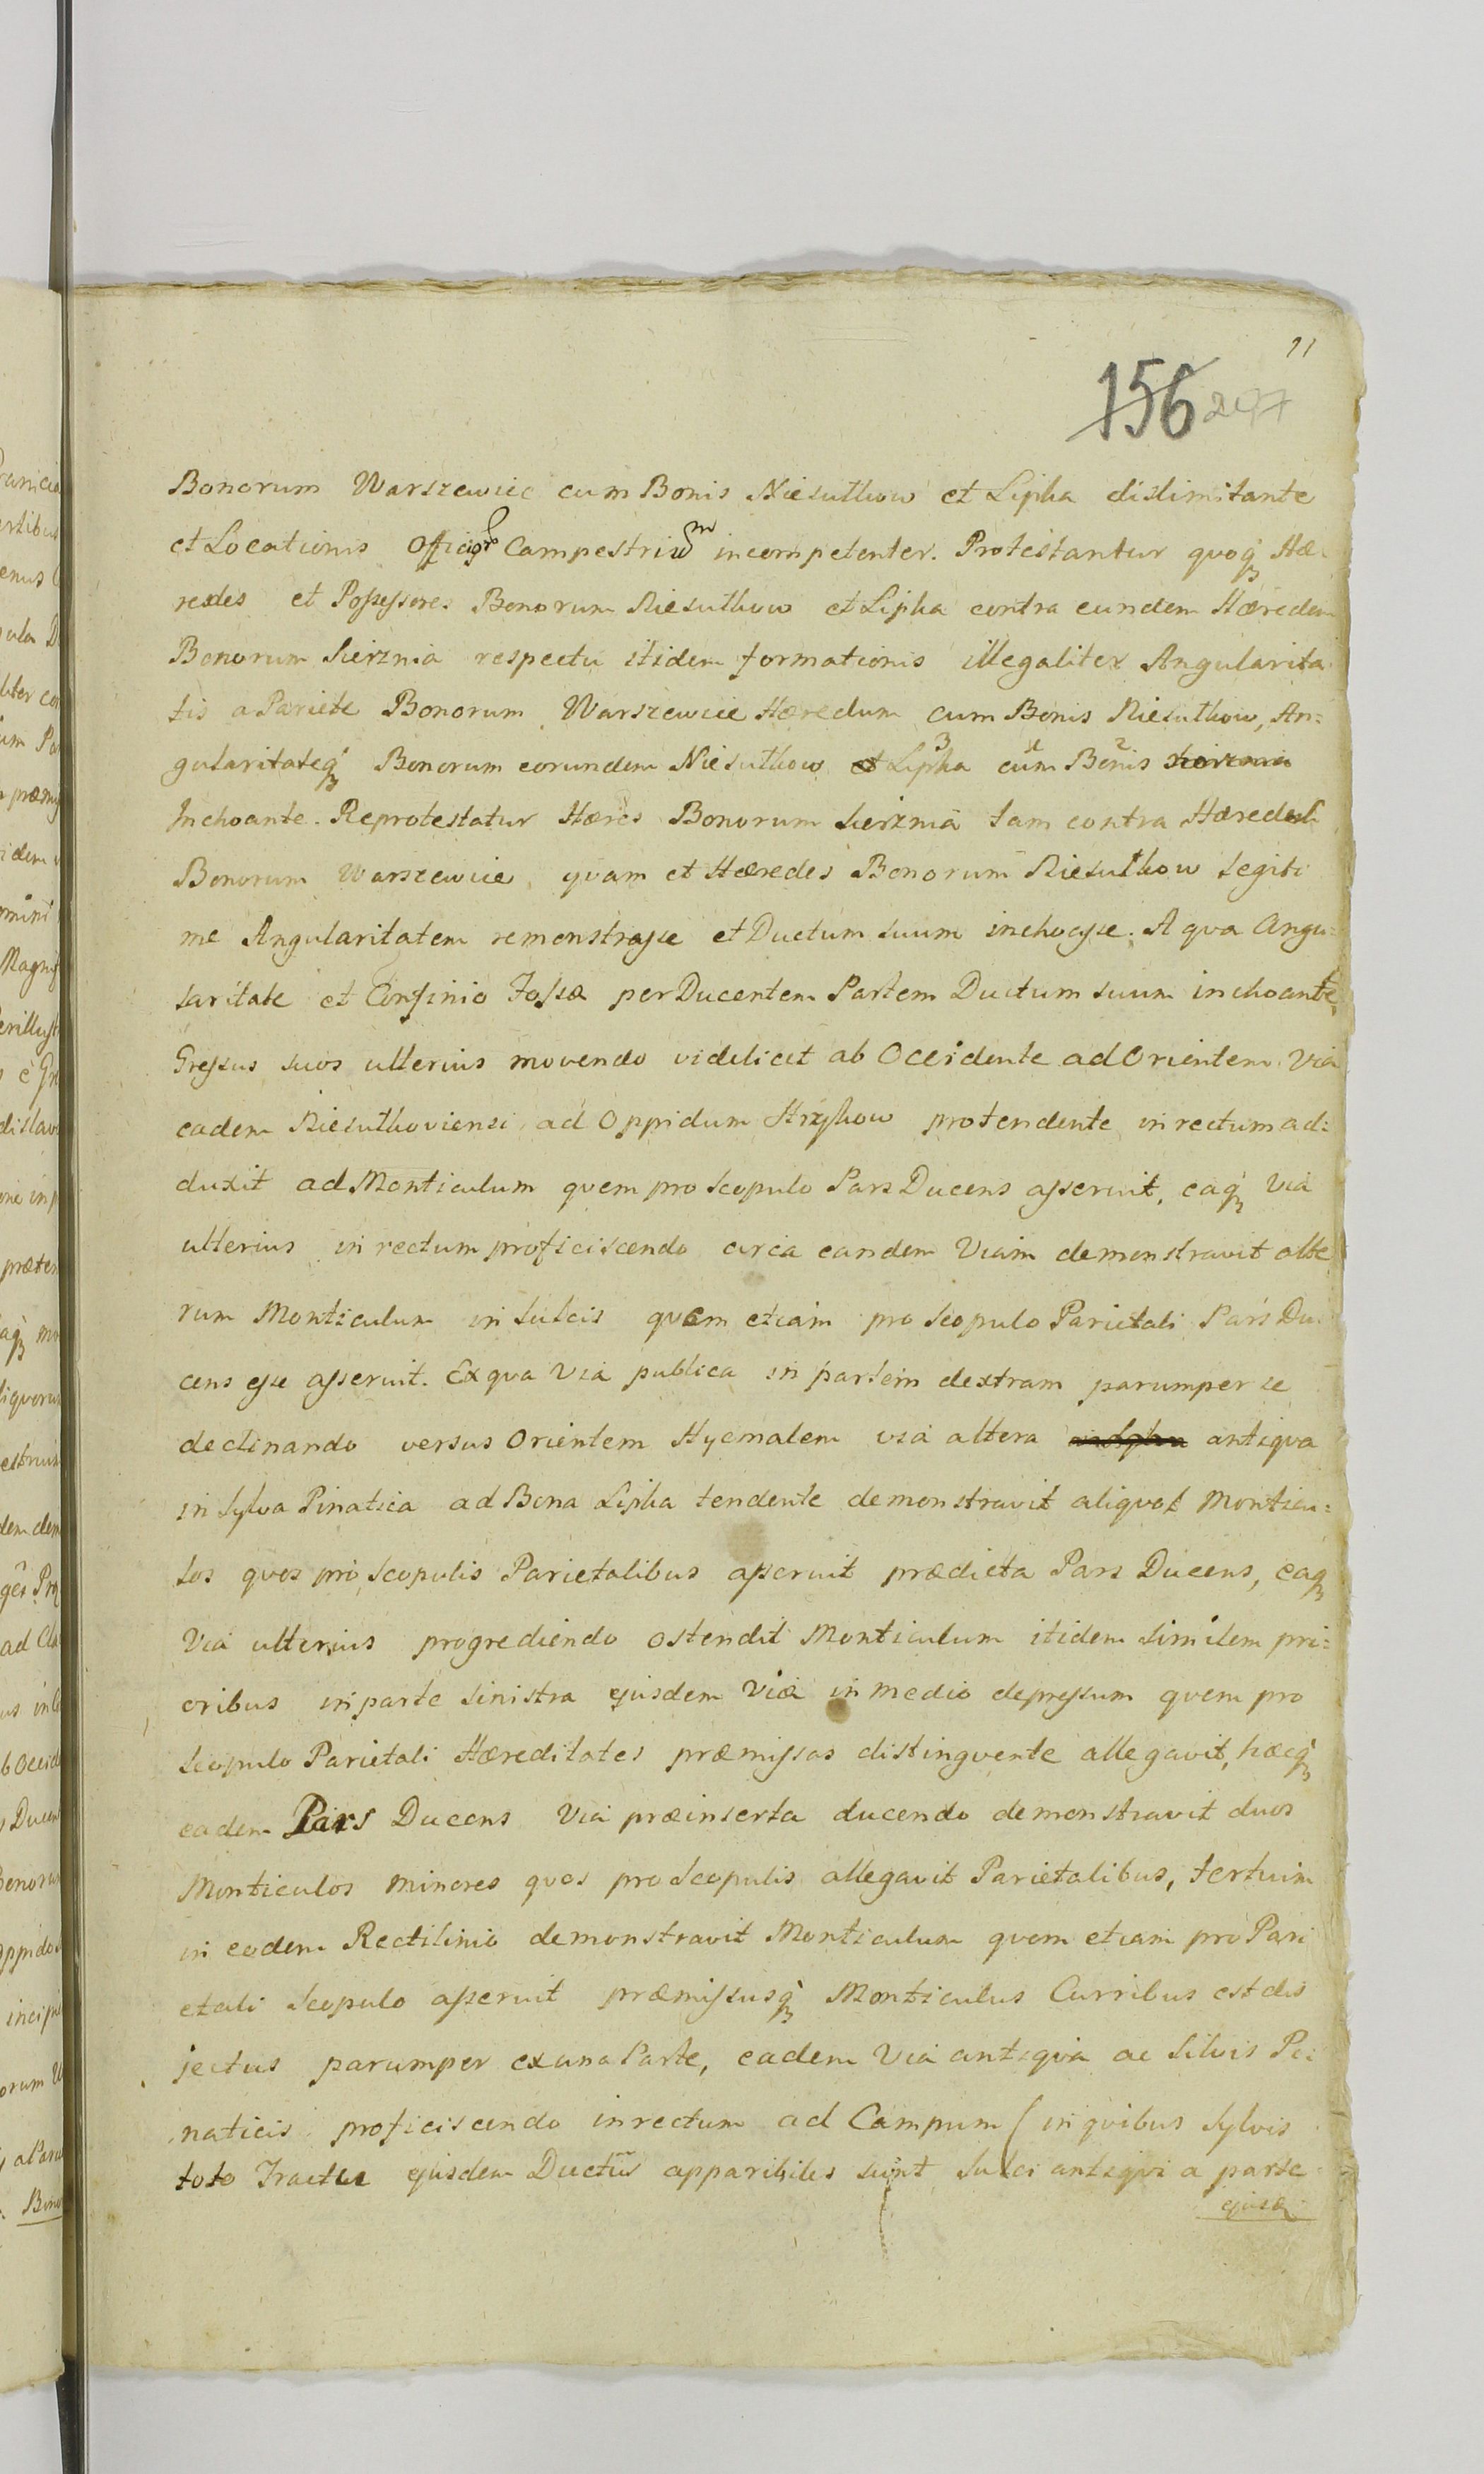 11
156 207
Bonorum Warszewice cum Bonis Niesułkow et Lipka dislimitante
et Locationis Officior Campestrium incompetenter. Protestantur quoq Hæ-
redes et Possessores Bonorum Niesułkow et Lipka contra eundem Hæredem
Bonorum Sierznia respectu itidem formationis illegaliter Angularita-
tis a Pariete Bonorum Warszewice Hæredum cum Bonis Niesułkow, An=
gularitateq Bonorum eorundem Niesułkow et Lipka 3 cum 1 Bonis 2
Inchoante. Reprotestatur Hæres Bonorum Sierznia tam contra Hæredes
Bonorum Warszewice, quam et Hæredes Bonorum Niesułkow legiti
me Angularitatem remonstrasse et Ductum suum inchoasse. A qua Angu=
laritate et Confinio Fossa per Ducentem Partem Ductum suum inchoante
Gressus suos ulterius movendo videlicet ab Occidente ad Orientem Via
eadem Niesułkoviensi ad Oppidum Strykow protendente in rectum ad=
duxit ad Monticulum quem pro Scopulo Pars Ducens asseruit, eaq Via
ulterius in rectum proficiscendo circa eandem Viam demonstravit alte
rum Monticulum in Sulcis quem etiam pro Scopulo Parietali Pars Du-
cens esse asseruit. Ex qua Via publica in partem dextram parumper se
declinando versus Orientem Hyemalem via altera antiqua
in Sylva Pinatica ad Bona Lipka tendente demonstravit aliquot Monticu=
los quos pro Scopulis Parietalibus asseruit prædicta Pars Ducens, eaq
Via ulterius progrediendo ostendit Monticulum itidem similem pri=
oribus in parte sinistra ejusdem Viæ in medio depressum quem pro
Scopulo Parietali Hæreditates præmissas distinguente allegavit, hæcq
eadem Pars Ducens Via præinserta ducendo demonstravit duos
Monticulos minores quos pro Scopulis allegavit Parietalibus, tertium
in eodem Rectilinio demonstravit Monticulum quem etiam pro Pari
etali Scopulo asseruit præmissusq Monticulus Curribus est dis
jectus parumper ex una Parte, eadem Via antiqua ac Silvis Pi=
naticis proficiscendo in rectum ad Campum ( in quibus Sylvis
toto Tractu ejusdem Ductus apparibiles sunt Sulci antiqui a parte
ejusd